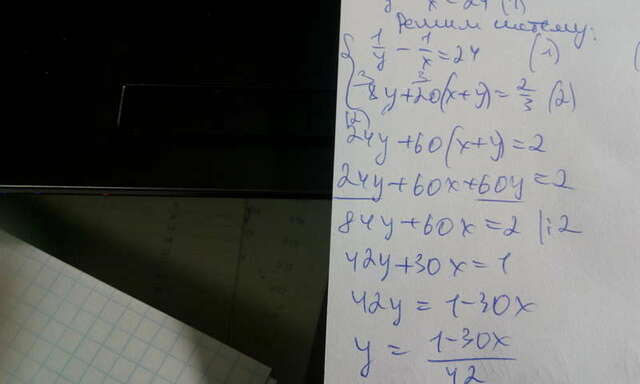 x = 24 (1)
Решим систему:
1/y - 1/x = 24 (1)
8y+20(x+y) = 2/3 (2)
(2)
24y+60(x+y)=2
24y+60x+60y=2
84y+60x=2 |:2
42y+30x=1
42y = 1-30x
y = 1-30x/42